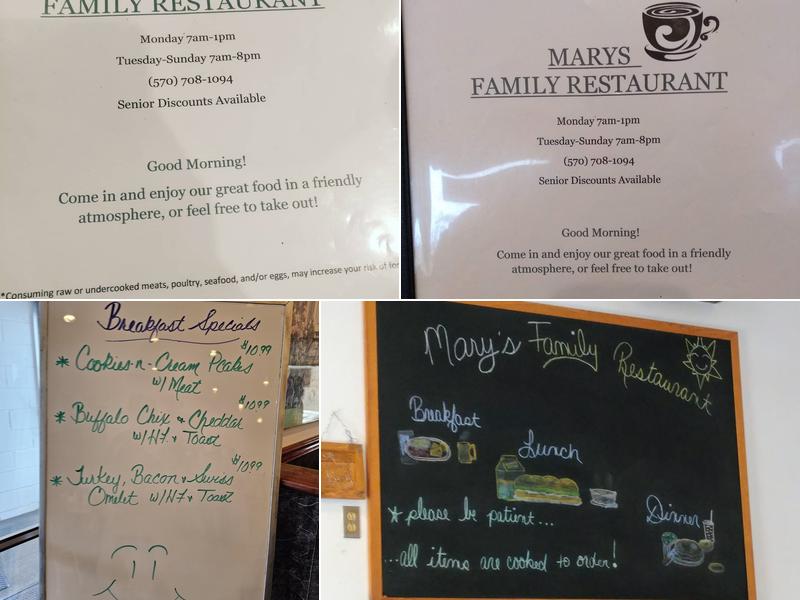 FAMILY RESTAURANT
Monday 7am-1pm
Tuesday-Sunday 7am-8pm
(570) 708-1094
Senior Discounts Available
Good Morning!
Come in and enjoy our great food in a friendly
atmosphere, or feel free to take out!
*Consuming raw or undercooked meats, poultry, seafood, and/or eggs, may increase your risk of
MARYS
FAMILY RESTAURANT
Monday 7am-1pm
Tuesday-Sunday 7am-8pm
(570) 708-1094
Senior Discounts Available
Good Morning!
Come in and enjoy our great food in a friendly
atmosphere, or feel free to take out!
Breakfast Specials
$10.99
* Cookies-n-Cream Pcakes
w/ Meat
$10.99
* Buffalo Chix & Cheddar
w/ H.F. & Toast
$10.99
* Turkey, Bacon & Swiss
Omelet w/ H.F. & Toast
Mary's Family Restaurant
Breakfast
Lunch
Dinner
* please be patient...
...all items are cooked to order!